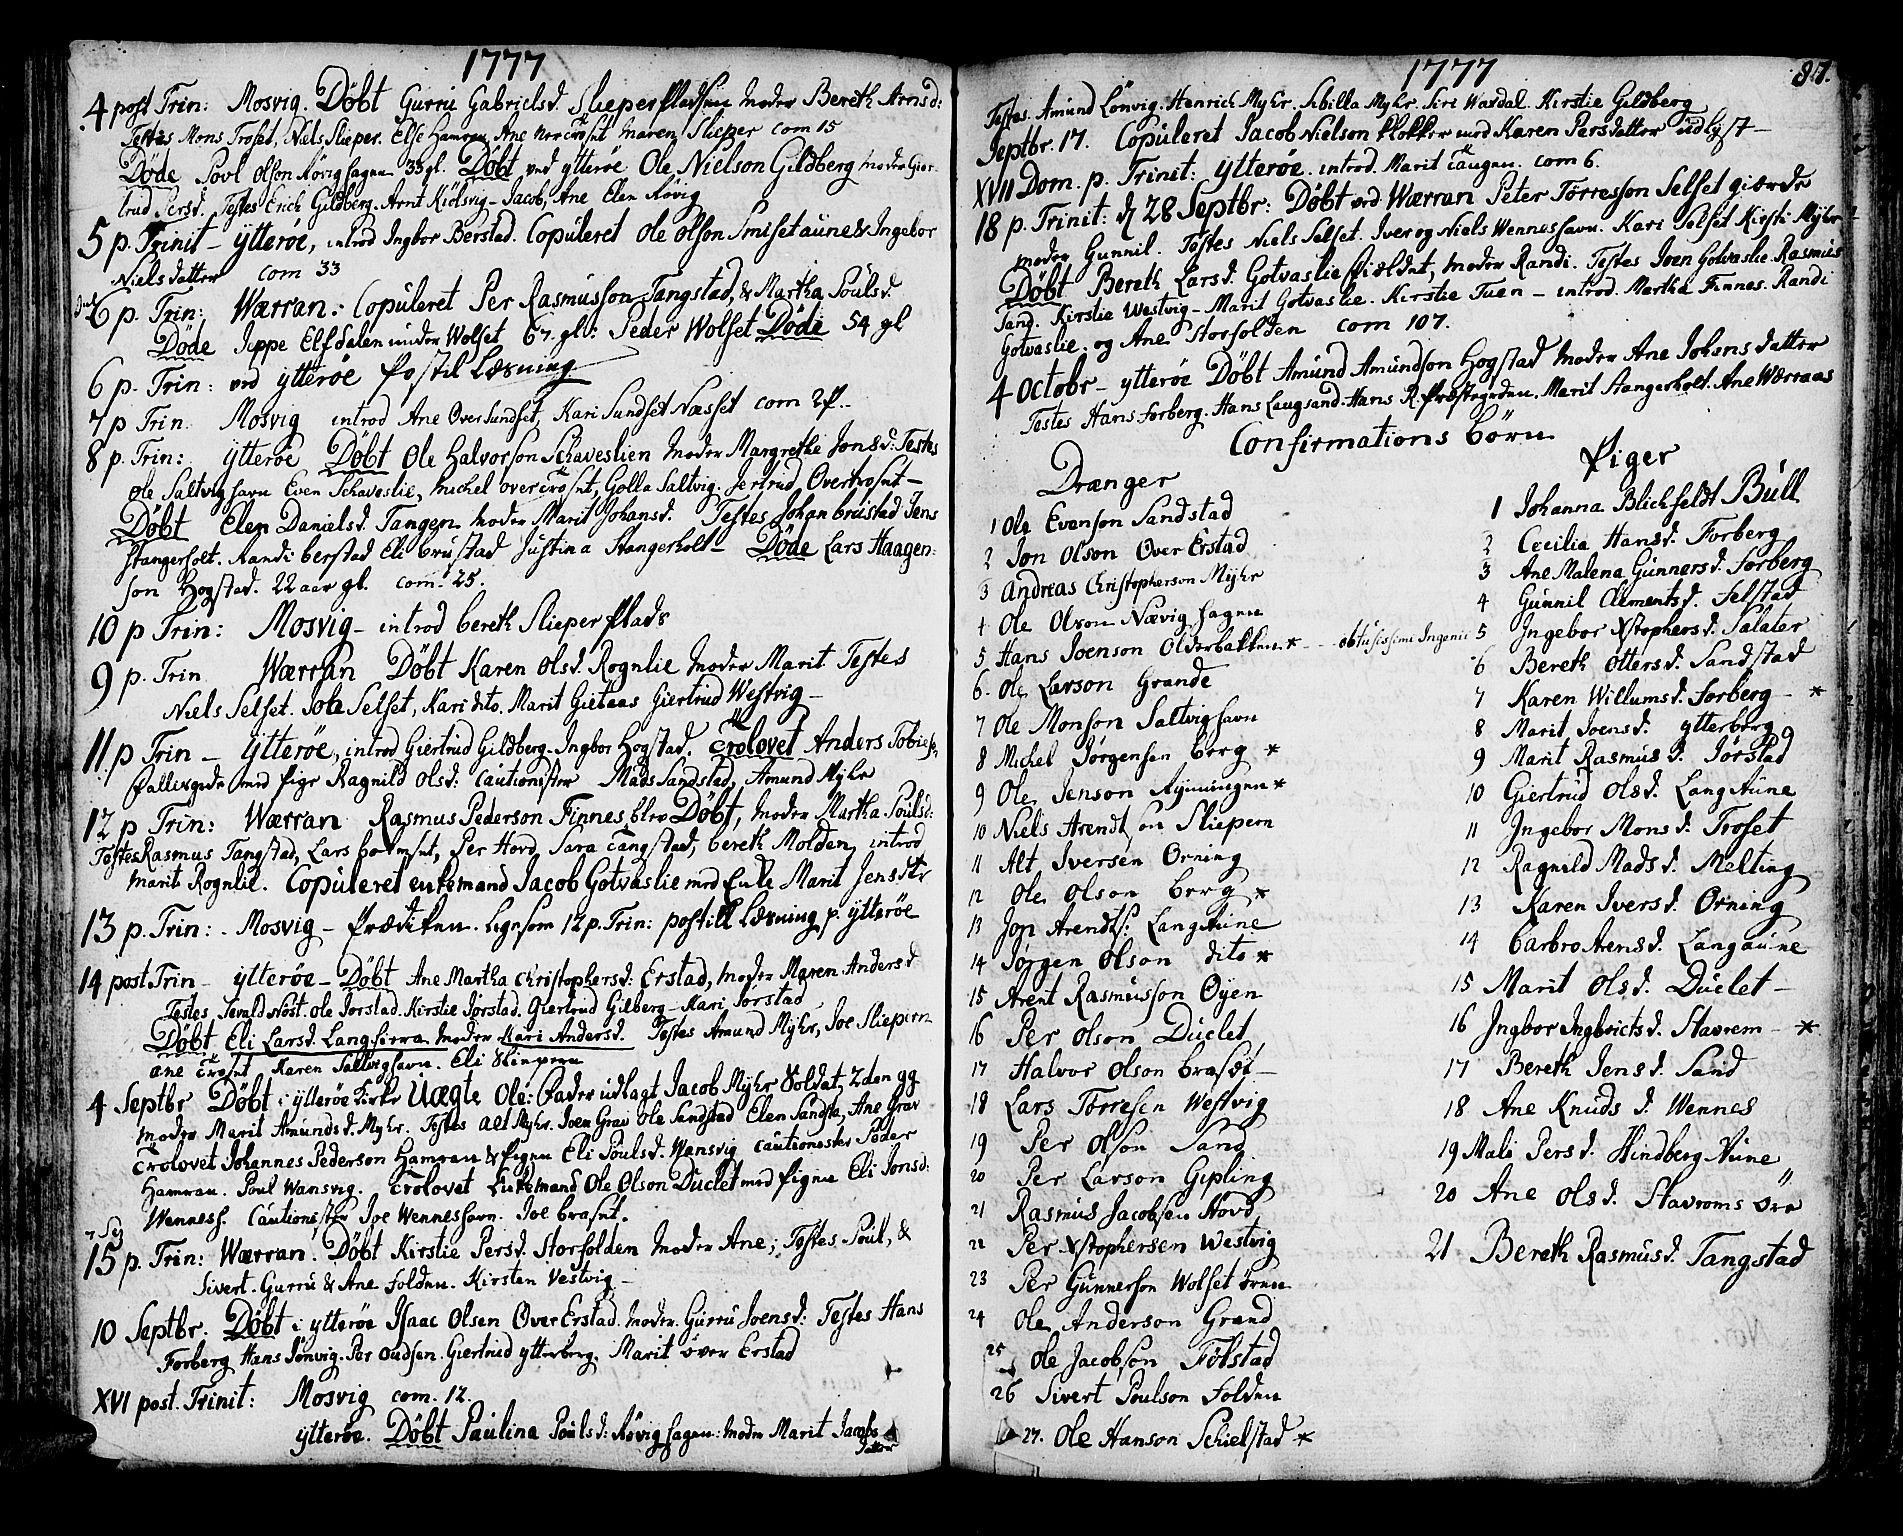 1777
4 post Trin: Mosvig. Döbt Gurru Gabrielsd. Slieperpladsen Moder Bereth Arnsd:
Testes Mons Troset, Niels Slieper. Else Hamran, Ane Maren Slieper com 15
Döde Povl Olson Rövighagen 33 gl. Döbt ved ytteröe Ole Nielson Gildberg moder Gier-
trud Persd. Testes Erich Gildberg. Arnt Kielsvig - Jacob, Ane Elen Rövig
5 p. Trinit - Ytteröe, introd Ingbor Berstad. Copuleret Ole Olson Smisetaune & Ingebor
Nielsdatter com 33
6 p. Trin: Wærran: Copuleret Per Rasmusson Tangstad, & Martha Poulsd.
Döde Jeppe Elfdalen under Wolset 67. gl: Peder Wolset Döde 54 gl
6 p. Trin: ved ytteröe Postil Læsning
7 p Trin. Mosvig introd Ane OverSundset, Kari Sundset Næsset com 24.
8 p. Trin: ytteröe Döbt Ole Halvorson Schaveslien Moder Margrethe Jonsd: Testes
Ole Saltvighavn Even Schaveslie, Michel overTrösnt, Golla Saltvig. Gertrud Overtrosnt -
Döbt Elen Danielsd. Tangen Moder Marit Johansd. Testes Johan brustad Jens
Stangerholt. Randi berstad Eli brustad Justina Stangerholt - Döde Lars Haagen-
son Hogstad. 22 aar gl. com. 25.
10 p Trin: Mosvig - introd bereth Slieperplads
9 p. Trin Wærran Döbt Karen Olsd. Rognlie Moder Marit Testes
Niels Selset. Joha Selset, Kari dito. Marit Gietaas Giertrud Westvig -
11 p Trin - Ytteröe, introd Giertrud Gildberg - Ingbor Hogstad. Trolovet Anders Tobies:
med Pige Ragnild Olsd: Cautionister Mads Sandstad, Amund Myhr
12 p Trin: Wærran Rasmus Pederson Finnes blev Döbt, Moder Martha Poulsd:
Testes Rasmus Tangstad, Lars, Per Hovd, Sara Tangstad, bereth Molden introd
Marit Rognlie. Copuleret enkemand Jacob Gotvaslie med Enke Marit Jensdtr
13 p. Trin: - Mosvig - Prædiken. Ligesom 12 p. Trin: postill Læsning p. ytteröe
14 post Trin - ytteröe - Döbt Ane Martha Christophersd: Erstad, Moder Maren Andersd
Testes Sevald Nöst. Ole Jorstad. Kirstie Jörstad. Giertrud Gilberg - Kari Jorstad
Döbt Eli Larsd. Langsierra Moder Kari Andersd. Testes Amund Myhr, Joe Sliepern
Ane Trösnt Karen Saltvighavn. Eli Sliepern
4 Septbr Döbt i ytteröe Kirke Uægte Ole: Fader udlagt Jacob Myhr Soldat, 2den gg
Moder Marit Amundsd. Myhr. Testes Alt Myhr. Joen Grav Ole Sandstad Elen Sandsta, Ane Grav
Trolovet Johannes Pederson Hamran & Pigen Eli Poulsd. Wansvig Cautionister Peder
Hamran. Poul Wansvig. Trolovet Enkemand Ole Olson Duclet med Pigen Eli Jonsd:
Wennesh. Cautionister Joe Wenneshavn. Joe brasnt.
7 Sep
15 p. Trin: Wærran. Döbt Kirstie Persd. Storfolden Moder Ane; Testes Poul, &
Sivert. Gurru & Ane Folden. Kirsten Vestvig -
10 Septbr. Döbt i ytteröe Isaac Olsen Over Erstad. Moder. Gurru Joensd: Testes Hans
Forberg Hans Lönvig. Per Oudsen. Giertrud ytterberg. Marit över Erstad
XVI post. Trinit: Mosvig com. 12.
ytteröe. Döbt Paulina Poulsd: Rövighagen: Moder Marit Jacobs
datter
1777
87.
Testes. Amund Lönvig. Henrich Myhr. Sibilla Myhr. Siri Wardal. Kirstie Gildberg
Septbr. 17. Copuleret Jacob Nielson klokker med Karen Persdatter udlyst -
XVII Dom. p. Trinit: Ytteröe. introd. Marit Tangen. com 6.
18 p. Trinit: d 28 Septbr: Döbt ved Wærran Peter Torresson Selset giærde
Moder Gunnil. Testes Niels Selset. Iver og Niels Wenneshavn. Kari Selset Kirsti Myhr
Döbt Bereth Larsd. Gotvaslie Fieldet, Moder Randi. Testes Joen Gotvaslie. Rasmus
Sand. Kirstie Westvig - Marit Gotvaslie. Kirstie Tuen - introd. Martha Finnes. Randi
Gotvaslie. og Ane Storfolden com 107.
4 Octobr - ytteröe Döbt Amund Amundson Hogstad Moder Ane Johansdatter
Testes Hans Forberg. Hans Laugsand. Hans R. Præstegrden. Marit Stangerholt. Ane Wærraas
Confirmations börn
Drænger
1 Ole Evenson Sandstad
2 Jon Olson Over Erstad
3 Andreas Christopherson Myhr
4 Ole Olson Nævighagen
5 Hans Joenson Olderbakken * - - obtusissimi Ingenii
6. Ole Larson Grande
7 Ole Monson Saltvighavn
8 Michel Jørgensen berg *
9 Ole Jenson Rynningen *
10 Niels Arendtson Sliepern
11 Alt Iversen Orning
12 Ole Olson berg *
13 Jon Arendts: LangAune
14 Jørgen Olson dito *
15 Arent Rasmusson Oyen
16 Per Olson Duclet
17 Halvor Olson brasöt -
18 Lars Torresen Westvig
19 Per Olson Sand
20 Per Larson Gipling
21 Rasmus Jacobsen Hovd
22 Per Xstophersen Westvig
23 Per Gunnerson Wolset ören
24 Ole Anderson Grand
25 Ole Jacobson Folstad
26 Sivert Poulson Folden
27. Ole Hanson Schielstad *
Piger
1 Johanna Blichfeldt Bull
2 Cecilia Hansd. Forberg
3 Ane Malena Gunnersd. Forberg
4 Gunnil Clementsd. Selstad
5 Ingebor Xstophersd. Salater
6 Bereth Ottersd. Sandstad
7 Karen Willumsd. Forberg - *
8 Marit Joensd. ytterberg
9 Marit Rasmusd. Jørstad
10 Giertrud Olsd. LangAune
11 Ingebor Monsd. Troset
12 Ragnild Madsd. Melting
13 Karen Iversd. Orning
14 Barbro Arensd. Langaune
15 Marit Olsd. Duclet -
16 Ingbor Ingbrictsd. Stavrem - *
17 Bereth Jensd. Sand
18 Ane Knudsd. Wennes
19 Mali Persd. Hindberg Aune
20 Ane Olsd. Stavroms öre
21 Bereth Rasmusd. Tangstad